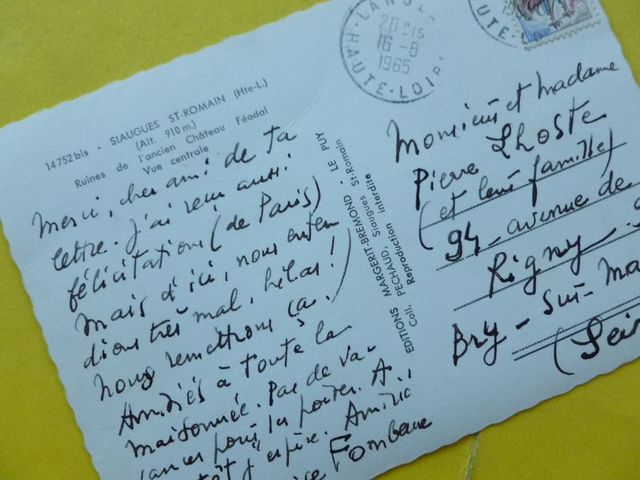 14752 bis - SIAUGUES ST-ROMAIN (Hte-L.)
(Alt. 910 m.)
Ruines de l'ancien Château Féodal
Vue centrale
Merci, cher ami de ta
lettre. J'ai reçu aussi
félicitations (de Paris)
Mais d'ici, nous enten
dions très mal, hélas!
Nous remettrons ça.)
Amitiés à toute la
maisonnée. Pas de va-
cances pour les poètes. A
j'espère. Amitié
Fombeure
EDITIONS MARGERIT-BREMOND - LE PUY
Coll. PECHAUD Siaugues St-Romain
Reproduction interdite
HAUTE-LOIRE
16-8
1965
Monsieur et madame
Pierre Lhoste
(et leur famille)
94 - avenue de
Rigny -
Bry - sur - Ma
(Sei